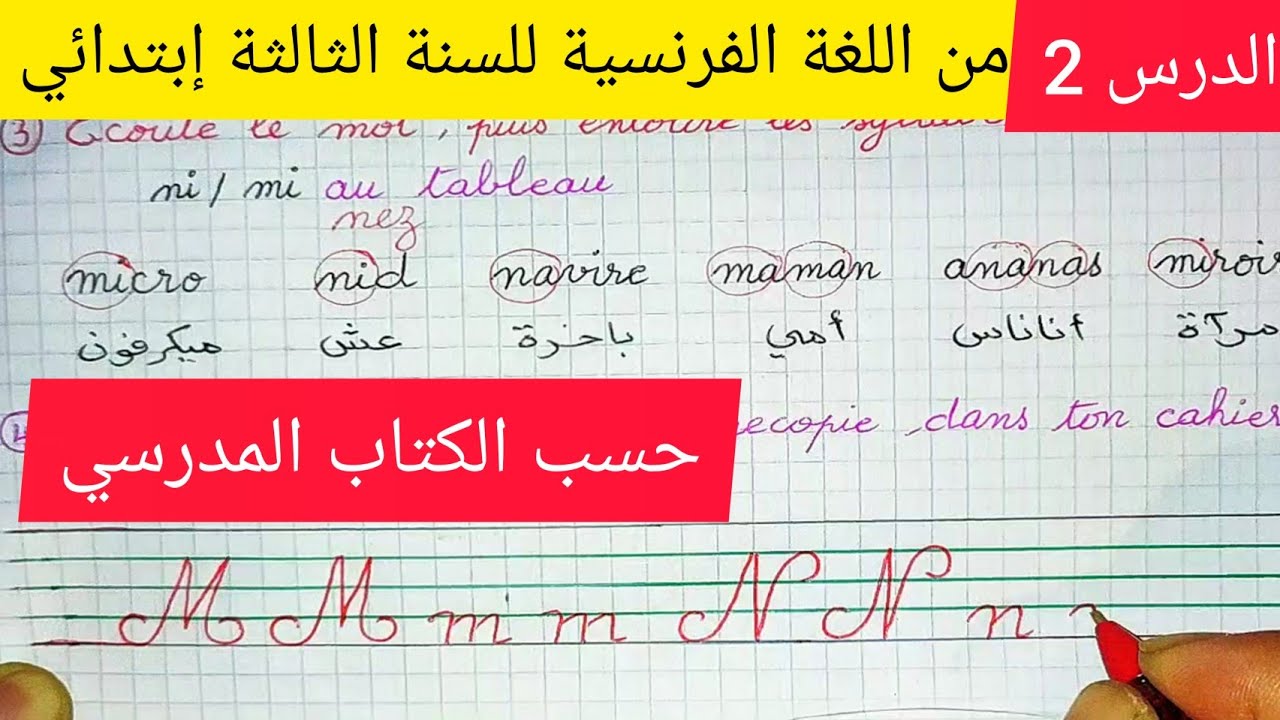 الدرس 2 من اللغة الفرنسية للسنة الثالثة إبتدائي
③ Ecoute le mot, puis entoure les
ni / mi au tableau
nez
micro nid navire maman ananas miroir
ميكرفون عش باخرة أمي أناناس مرآة
حسب الكتاب المدرسي
recopie, dans ton cahier
M M m m N N n